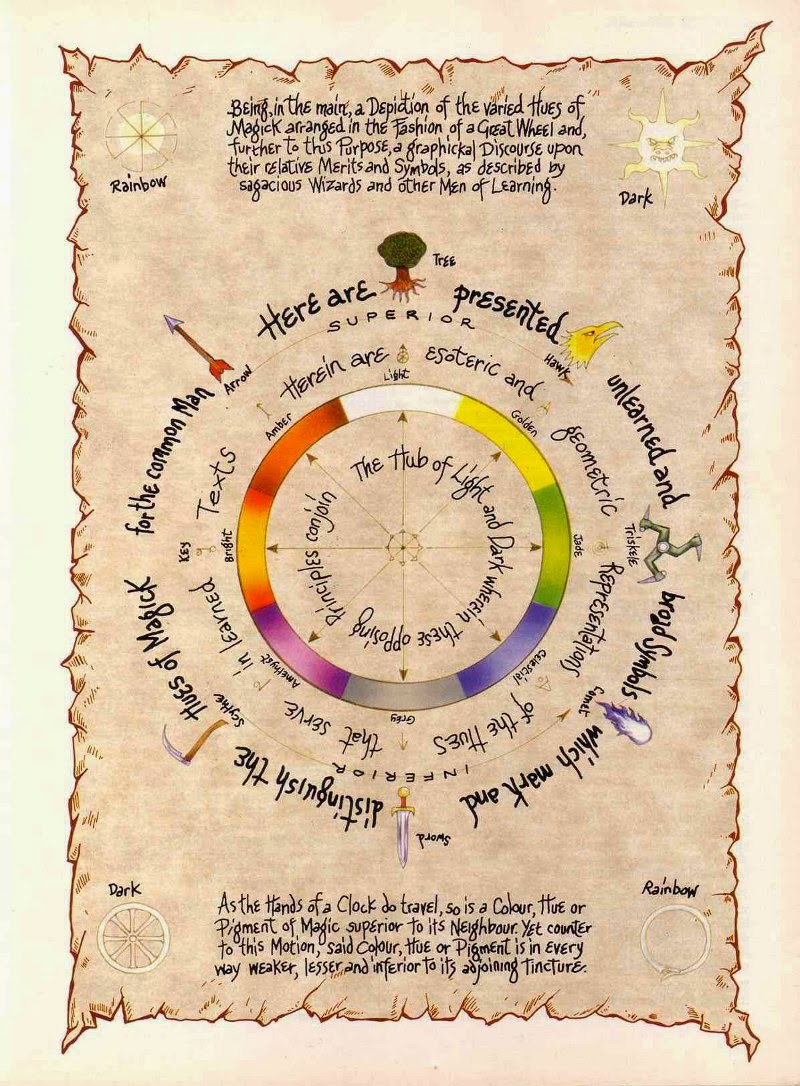 Being, in the main, a Depiction of the varied Hues of
Magick arranged in the Fashion of a Great Wheel and,
further to this Purpose, a graphickal Discourse upon
their relative Merits and Symbols, as described by
sagacious Wizards and other Men of Learning.
Rainbow
Dark
Here are presented unlearned and broad Symbols which mark and distinguish the Hues of Magick for the common Man
Tree
Hawk
Triskele
Comet
Sword
Scythe
Key
Arrow
SUPERIOR
INFERIOR
Herein are esoteric and geometric Representations of the Hues that serve in learned Texts
Light
Golden
Jade
Celestial
Grey
Amethyst
Bright
Amber
The Hub of Light and Dark wherein these opposing Principles conjoin
Dark
Rainbow
As the Hands of a Clock do travel, so is a Colour, Hue or
Pigment of Magic superior to its Neighbour. Yet counter
to this Motion, said Colour, Hue or Pigment is in every
way weaker, lesser and inferior to its adjoining tincture.